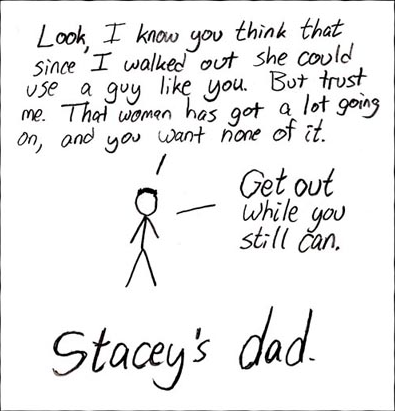 Look, I know you think that
since I walked out she could
use a guy like you. But trust
me. That woman has got a lot going
on, and you want none of it.
Get out
while you
still can.
Stacey's dad.